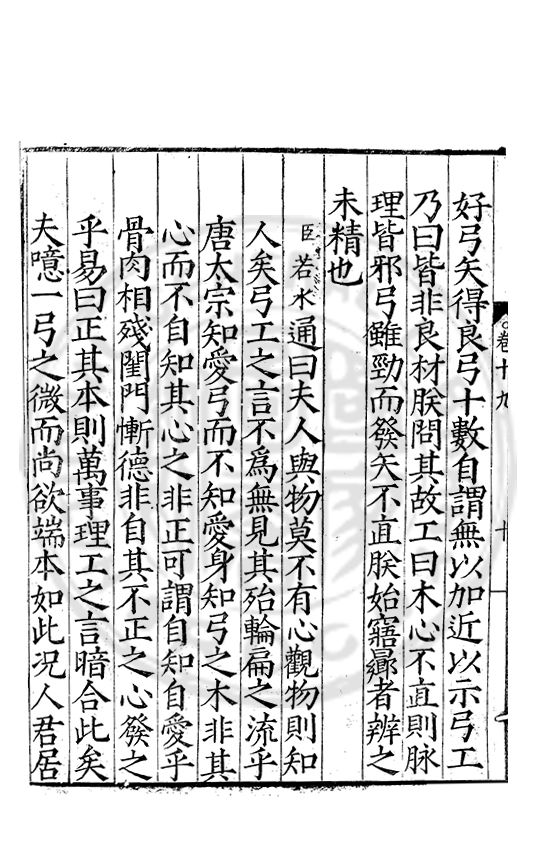 卷十九
十
好弓矢得良弓十數自謂無以加近以示弓工
乃曰皆非良材朕問其故工曰木心不直則脉
理皆邪弓雖勁而發矢不直朕始寤曏者辨之
未精也
臣若水通曰夫人與物莫不有心觀物則知
人矣弓工之言不爲無見其殆輪扁之流乎
唐太宗知愛弓而不知愛身知弓之木非其
心而不自知其心之非正可謂自知自愛乎
骨肉相殘閨門慚德非自其不正之心發之
乎易曰正其本則萬事理工之言暗合此矣
夫噫一弓之微而尚欲端本如此况人君居